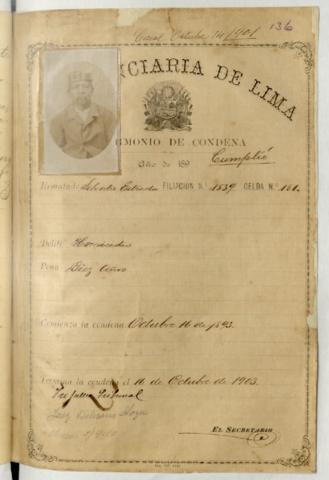 136
Octubre 14/901
NCIARIA DE LIMA
IMONIO DE CONDENA
Año de 189
Cumplió
Rematado Salvador FILIACION N.° 1839 CELDA N.° 181.
Delito Homicidio
Pena Diez años
Comienza la condena Octubre 16 de 1893.
Termina la condena el 16 de Octubre de 1903.
Tribunal
Juez
EL SECRETARIO